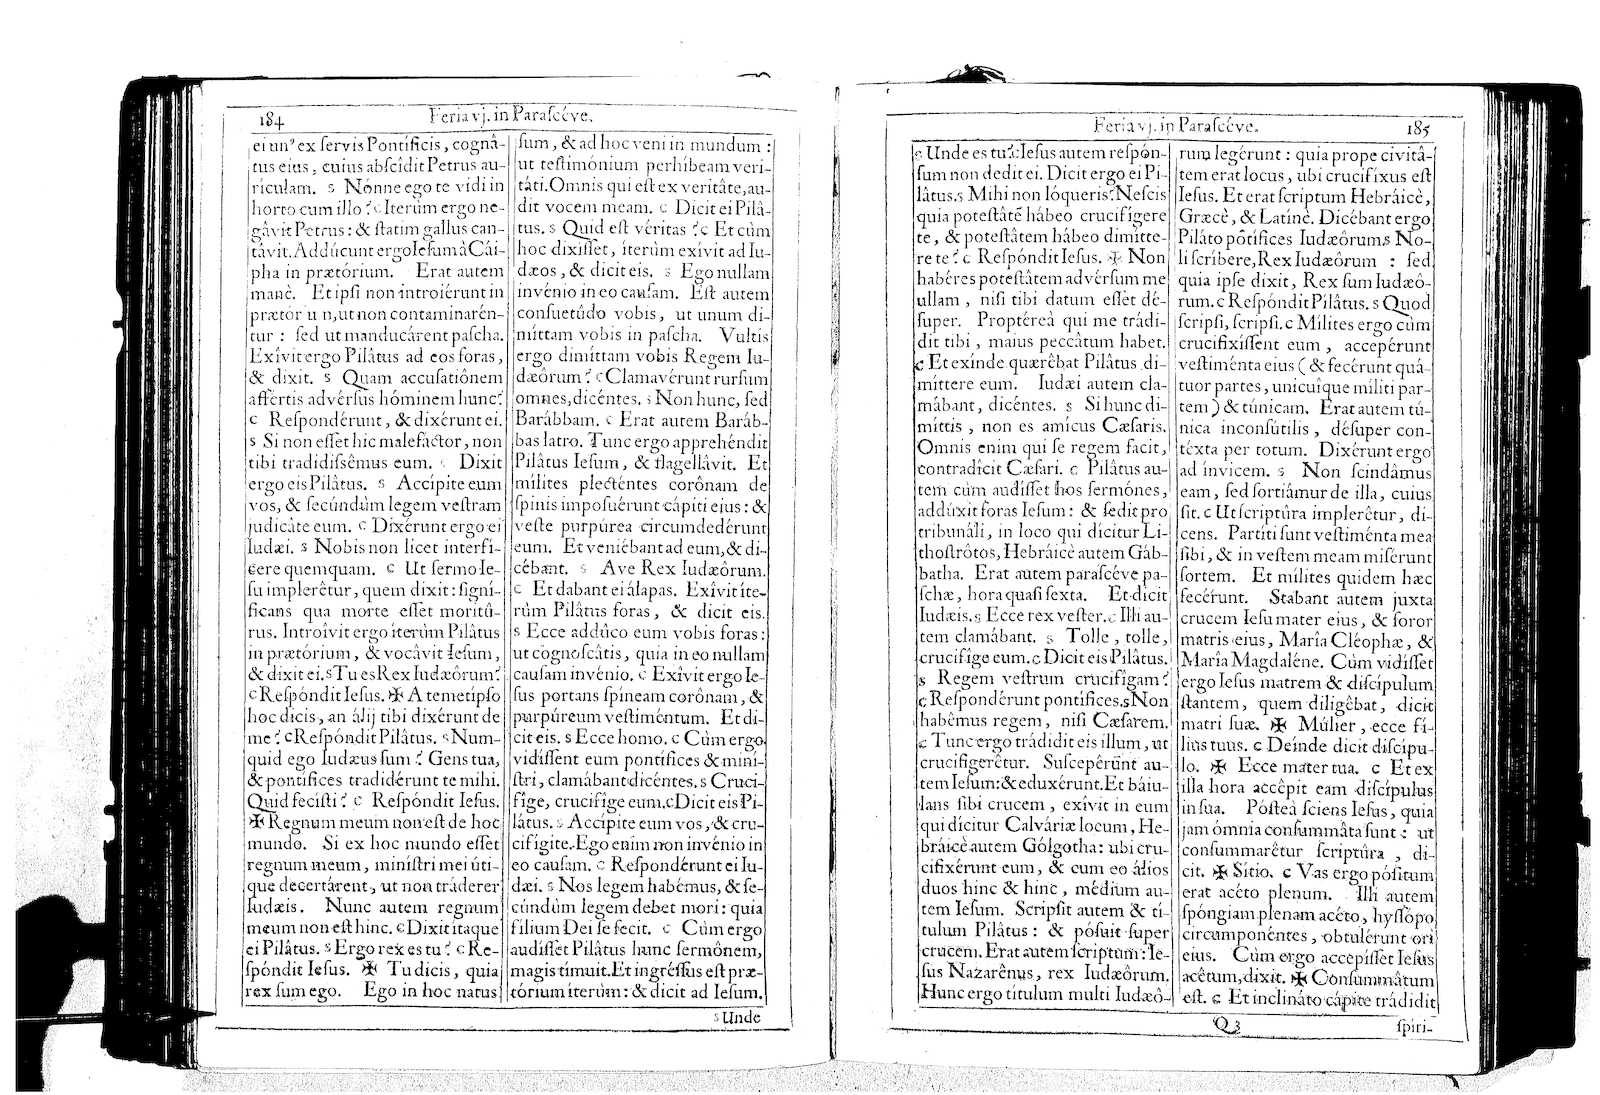 184
Feria vj. in Paraſcéve.
ei un⁹ ex ſervis Pontíficis, cognâ-
tus eius, cuius abſcîdit Petrus au-
rículam. s Nónne ego te vidi in
horto cum illo? c Iterùm ergo ne-
gâvit Petrus: & ſtatim gallus can-
távit. Addúcunt ergo Ieſum à Cái-
pha in prætórium. Erat autem
manè. Et ipſi non introiérunt in
prætór u n, ut non contaminarén-
tur : ſed ut manducárent paſcha.
Exîvit ergo Pilâtus ad eos foras,
& dixit. s Quam accuſatiônem
affértis advérſus hóminem hunc?
c Reſpondérunt, & dixérunt ei.
s Si non eſſet hic malefáctor, non
tibi tradidiſsêmus eum. c Dixit
ergo eis Pilâtus. s Accípite eum
vos, & ſecúndùm legem veſtram
judicâte eum. c Dixérunt ergo ei
Iudæi. s Nobis non licet interfí-
cere quemquam. c Ut ſermo Ie-
ſu implerêtur, quem dixit: ſigní-
ficans qua morte eſſet moritû-
rus. Introîvit ergo íterùm Pilâtus
in prætórium, & vocâvit Ieſum,
& dixit ei. s Tu es Rex Iudæórum?
c Reſpóndit Ieſus. ✠ A temetípſo
hoc dicis, an álij tibi dixérunt de
me? c Reſpóndit Pilâtus. s Num-
quid ego Iudæus ſum? Gens tua,
& pontífices tradidérunt te mihi.
Quid feciſti? c Reſpóndit Ieſus.
✠ Regnum meum non eſt de hoc
mundo. Si ex hoc mundo eſſet
regnum meum, miniſtri mei úti-
que decertárent, ut non tráderer
Iudæis. Nunc autem regnum
meum non eſt hinc. c Dixit ítaque
ei Pilâtus. s Ergo rex es tu? c Re-
ſpóndit Ieſus. ✠ Tu dicis, quia
rex ſum ego. Ego in hoc natus
ſum, & ad hoc veni in mundum :
ut teſtimónium perhíbeam veri-
táti. Omnis qui eſt ex veritâte, au-
dit vocem meam. c Dicit ei Pilâ-
tus. s Quid eſt véritas? c Et cùm
hoc dixiſſet, íterùm exívit ad Iu-
dæos, & dicit eis. s Ego nullam
invénio in eo cauſam. Eſt autem
conſuetûdo vobis, ut unum di-
míttam vobis in paſcha. Vultis
ergo dimíttam vobis Regem Iu-
dæôrum? c Clamavérunt rurſum
omnes, dicéntes. s Non hunc, ſed
Barábbam. c Erat autem Baráb-
bas latro. Tunc ergo apprehéndit
Pilâtus Ieſum, & flagellâvit. Et
mílites plecténtes corônam de
ſpinis impoſuérunt cápiti eius: &
veſte purpúrea circumdedérunt
eum. Et veniébant ad eum, & di-
cébant. s Ave Rex Iudæôrum.
c Et dabant ei álapas. Exîvit íte-
rùm Pilâtus foras, & dicit eis.
s Ecce addûco eum vobis foras:
ut cognoſcâtis, quia in eo nullam
cauſam invénio. c Exîvit ergo Ie-
ſus portans ſpíneam corônam, &
purpúreum veſtiméntum. Et di-
cit eis. s Ecce homo. c Cùm ergo
vidíſſent eum pontífices & miní-
ſtri, clamábant dicéntes. s Cruci-
fîge, crucifîge eum. c Dicit eis Pi-
látus. s Accípite eum vos, & cru-
cifígite. Ego enim non invénio in
eo cauſam. c Reſpondérunt ei Iu-
dæi. s Nos legem habémus, & ſe-
cúndùm legem debet mori: quia
filium Dei ſe fecit. c Cùm ergo
audíſſet Pilâtus hunc ſermônem,
magis tímuit. Et ingréſſus eſt præ-
tórium íterùm: & dicit ad Ieſum.
s Unde
Feria vj. in Paraſcéve.
185
s Unde es tu? c Ieſus autem reſpón-
ſum non dedit ei. Dicit ergo ei Pi-
lâtus. s Mihi non lóqueris? Neſcis
quia poteſtâtẽ hábeo crucifígere
te, & poteſtâtem hábeo dimítte-
re te? c Reſpóndit Ieſus. ✠ Non
habéres poteſtâtem advérſum me
ullam, niſi tibi datum eſſet dé-
ſuper. Proptéreà qui me trádi-
dit tibi, maius peccâtum habet.
c Et exínde quærêbat Pilâtus di-
míttere eum. Iudæi autem cla-
mábant, dicéntes. s Si hunc di-
míttis, non es amícus Cæſaris.
Omnis enim qui ſe regem facit,
contradícit Cæſari. c Pilâtus au-
tem cùm audíſſet hos ſermónes,
addúxit foras Ieſum: & ſedit pro
tribunáli, in loco qui dícitur Li-
thoſtrôtos, Hebráicè autem Gáb-
batha. Erat autem paraſcéve pa-
ſchæ, hora quaſi ſexta. Et dicit
Iudæis. s Ecce rex veſter. c Illi au-
tem clamábant. s Tolle, tolle,
crucifíge eum. c Dicit eis Pilâtus.
s Regem veſtrum crucifígam?
c Reſpondérunt pontífices. s Non
habêmus regem, niſi Cæſarem.
c Tunc ergo trádidit eis illum, ut
crucifigerêtur. Suſcepérunt au-
tem Ieſum: & eduxérunt. Et báiu-
lans ſibi crucem, exívit in eum
qui dícitur Calváriæ locum, He-
bráicè autem Gólgotha: ubi cru-
cifixérunt eum, & cum eo álios
duos hinc & hinc, médium au-
tem Ieſum. Scripſit autem & tí-
tulum Pilâtus: & póſuit ſuper
crucem. Erat autem ſcriptum: Ie-
ſus Nazarênus, rex Iudæôrum.
Hunc ergo títulum multi Iudæô-
rum legérunt : quia prope civitâ-
tem erat locus, ubi crucifíxus eſt
Ieſus. Et erat ſcriptum Hebráicè,
Græcè, & Latínè. Dicébant ergo
Piláto põtífices Iudæôrum. s No-
li ſcríbere, Rex Iudæôrum : ſed
quia ipſe dixit, Rex ſum Iudæô-
rum. c Reſpóndit Pilâtus. s Quod
ſcripſi, ſcripſi. c Mílites ergo cùm
crucifixíſſent eum, accepérunt
veſtiménta eius (& fecérunt quá-
tuor partes, unicuîque míliti par-
tem) & túnicam. Erat autem tú-
nica inconſútilis, déſuper con-
téxta per totum. Dixérunt ergo
ad ínvicem. s Non ſcindâmus
eam, ſed ſortiâmur de illa, cuius
ſit. c Ut ſcriptûra implerêtur, di-
cens. Partíti ſunt veſtiménta mea
ſibi, & in veſtem meam miſérunt
ſortem. Et mílites quidem hæc
fecérunt. Stabant autem juxta
crucem Ieſu mater eius, & ſoror
matris eius, María Cléophæ, &
María Magdaléne. Cùm vidíſſet
ergo Ieſus matrem & diſcípulum
ſtantem, quem diligêbat, dicit
matri ſuæ. ✠ Múlier, ecce fí-
lius tuus. c Deínde dicit diſcípu-
lo. ✠ Ecce mater tua. c Et ex
illa hora accêpit eam diſcípulus
in ſua. Póſteà ſciens Ieſus, quia
jam ómnia conſummâta ſunt : ut
conſummarêtur ſcriptûra, di-
cit. ✠ Sitio. c Vas ergo póſitum
erat acéto plenum. Illi autem
ſpóngiam plenam acéto, hyſſôpo
circumponéntes, obtulérunt ori
eius. Cùm ergo accepíſſet Ieſus
acêtum, dixit. ✠ Conſummâtum
eſt. c Et inclináto cápite trádidit
Q 3
ſpíri-